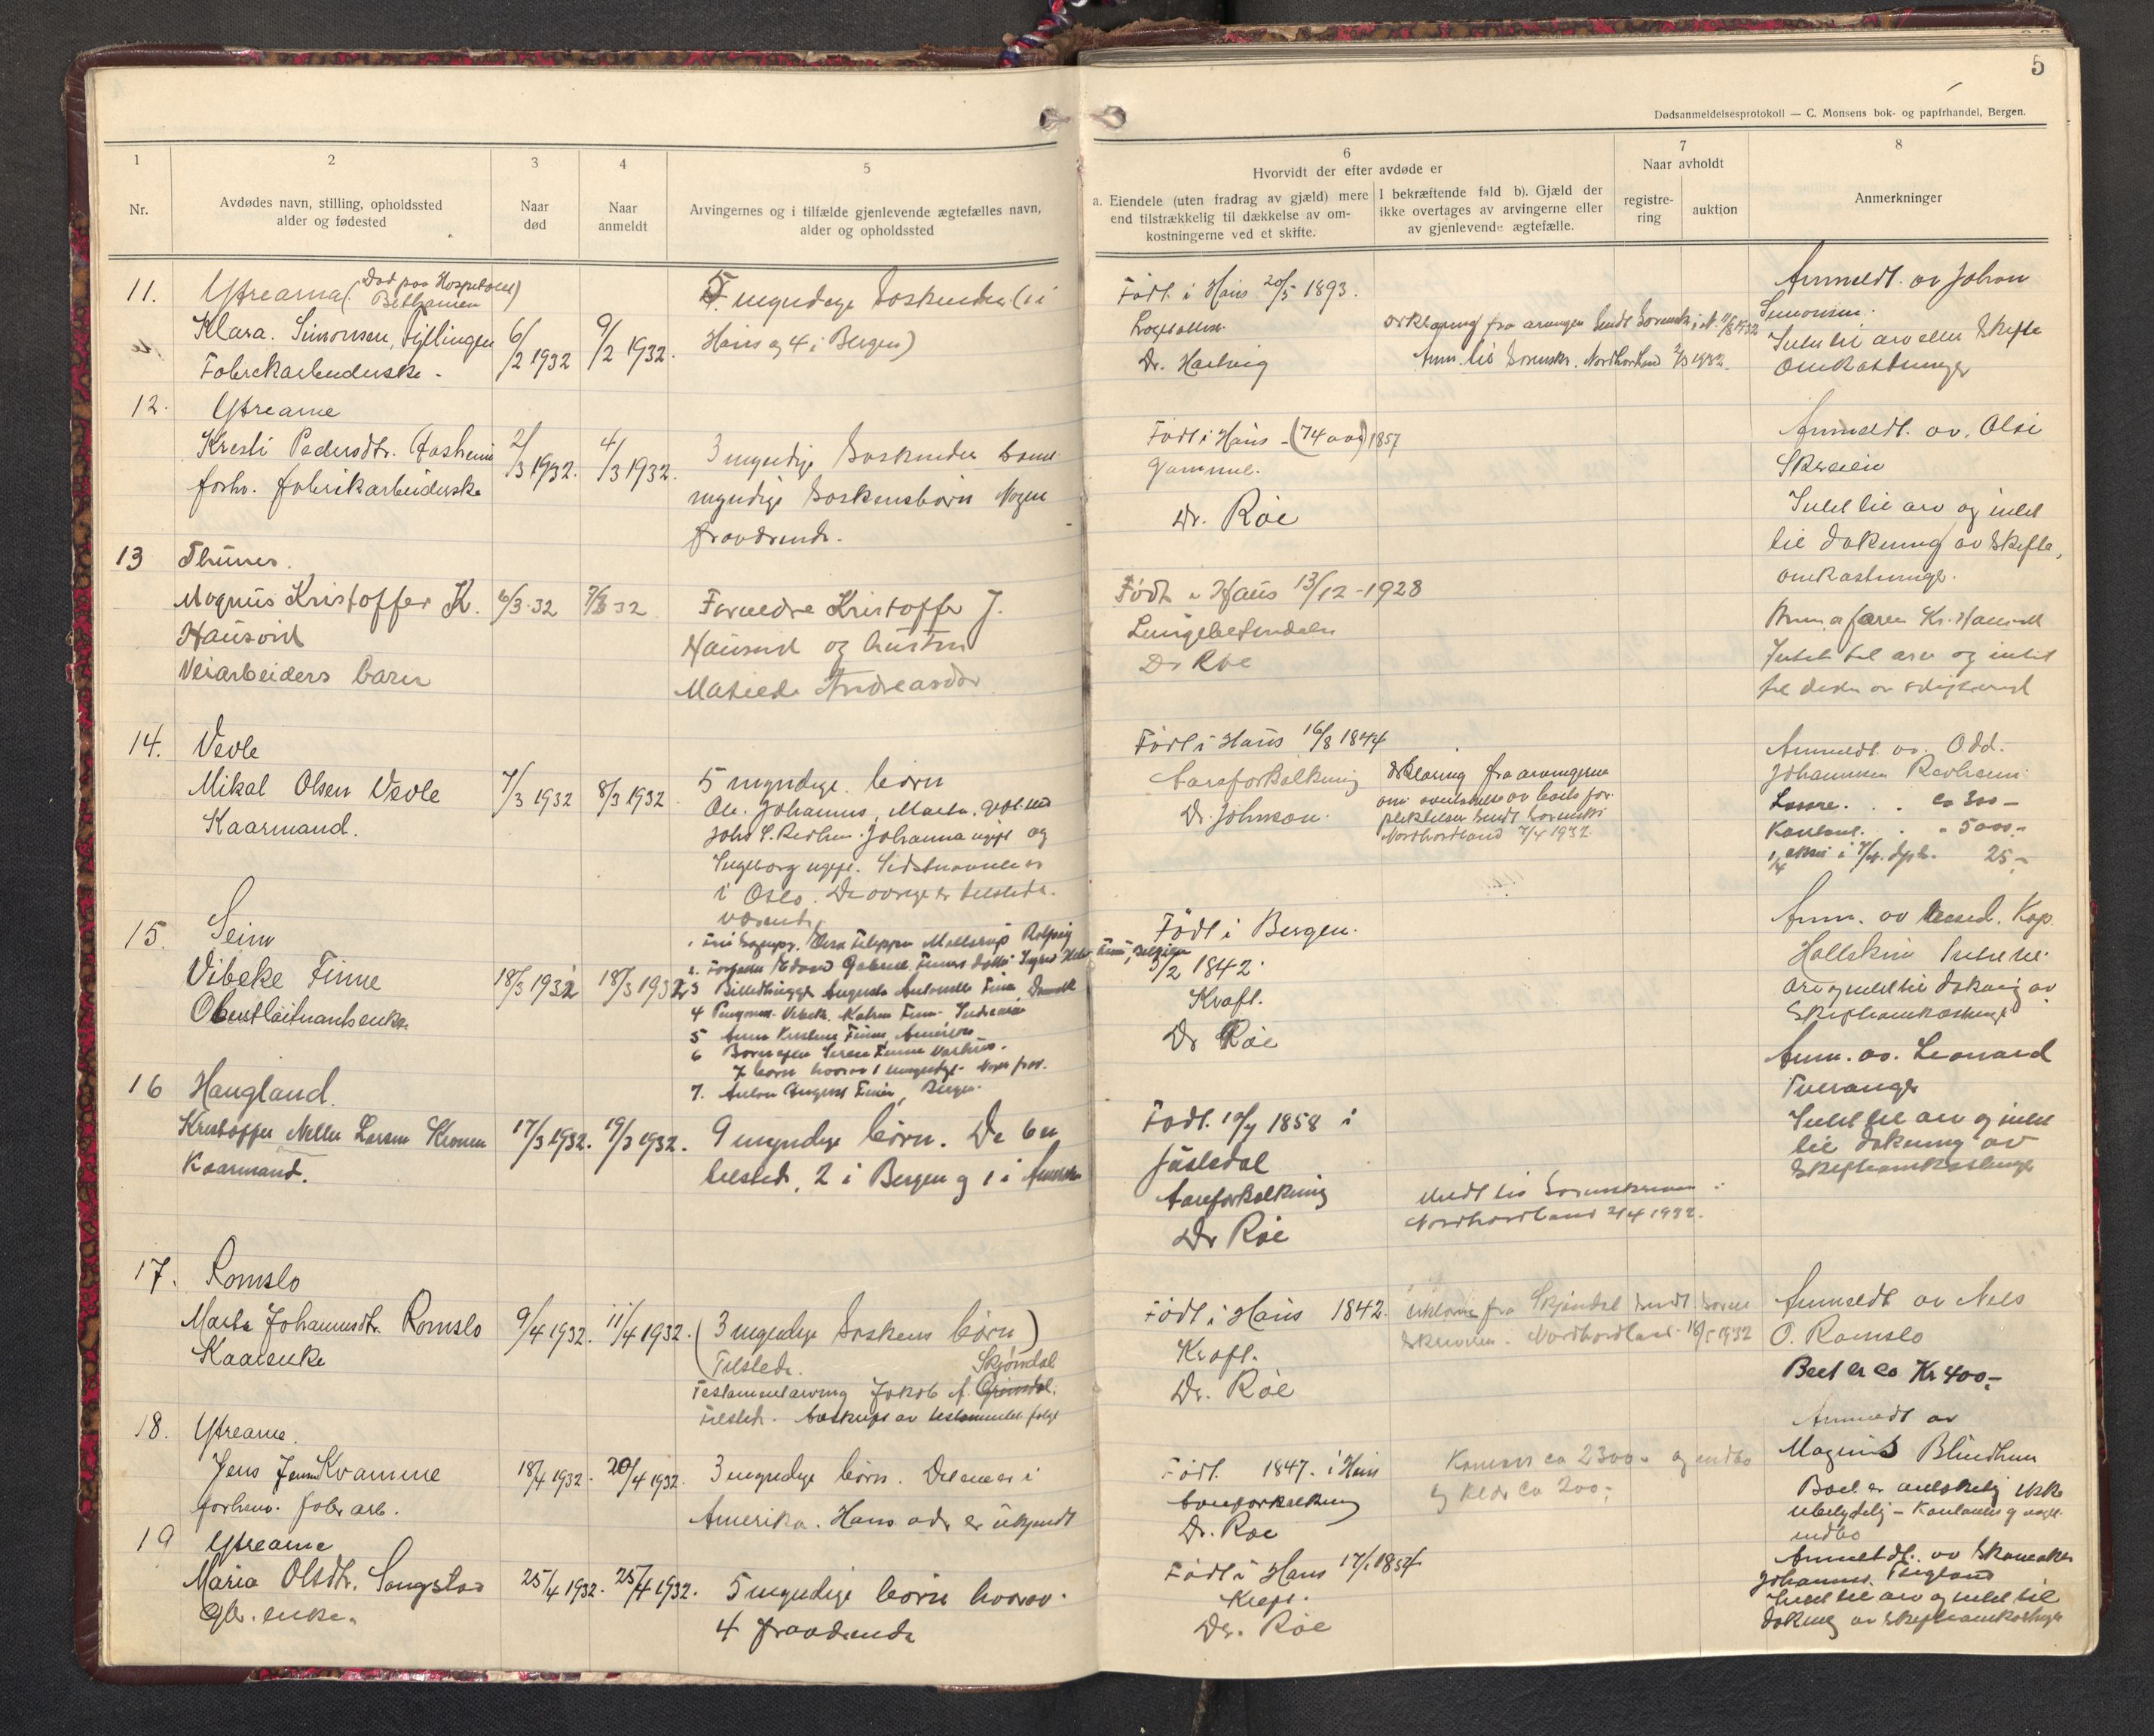 5
Dødsanmeldelsesprotokoll — C. Monsens bok- og papirhandel, Bergen.
1
2
3
4
5
6
7
8
Nr.
Avdødes navn, stilling, opholdssted
alder og fødested
Naar
død
Naar
anmeldt
Arvingernes og i tilfælde gjenlevende ægtefælles navn,
alder og opholdssted
Hvorvidt der efter avdøde er
a. Eiendele (uten fradrag av gjæld) mere
end tilstrækkelig til dækkelse av om-
kostningerne ved et skifte.
I bekræftende fald b). Gjæld der
ikke overtages av arvingerne eller
av gjenlevende ægtefælle.
Naar avholdt
registre-
ring
auktion
Anmerkninger
11. Ytrearna (Død paa Hospitalet
Bethanien)
Klara Simonsen, Fyllingen
Fabrikarbeiderske.
6/2 1932
9/2 1932.
5 myndige søskender (1 i
Haus og 4 i Bergen)
Født i Haus 20/5 1893.
Dr. Hartvig
erklæring fra arvingen sendt Sorenskr. i N.
Anm. til Sorenskr. Nordhordland 1932.
Anmeldt av Johan
Simonsen.
Intet til arv eller skifte
omkostninger
12. Ytrearne
Kristi Pedersdtr.
forhv. fabrikarbeiderske
2/3 1932.
4/3 1932.
3 myndige søskender samt
myndige søskensbørn Nogen
fraværende.
Født i Haus - (74 aar) 1857
Dr. Røe
Anmeldt av Olai
Intet til arv og intet
til dækning av skifte,
omkostninger.
13 Thunes.
Magnus Kristoffer K.
Hausvid
Veiarbeiders barn
6/3 32
7/3 32
Foreldre Kristoffer J.
Hausvid og
Matilde Andreasdtr
Født i Haus 13/12 - 1928
Lungebetendelse
Dr Røe
Anm. av faren Kr.
Intet til arv og intet
14. Vevle
Mikal Olsen Vevle
Kaarmand.
7/3 1932
8/3 1932
5 myndige børn
Ole, Johannes, Marta, gift med
Johanna ugift og
Ingeborg ugift. Sidstnævnte er
i Oslo. De øvrige er tilstede-
værende
Født i Haus 16/8 1844
Aareforkalkning
Dr. Johnson.
Erklæring fra arvingerne
om overtakelse av boets for-
pliktelser sendt Sorenskr.
Nordhordland 7/4 1932.
Anmeldt av Odd.
Johannesen
Løsøre . . ca 300 -
Kontant. . . " 5000.-
25 -
15. Seim
Vibeke Finne
Oberstløitnantsenke
18/3 1932
18/3 1932
4 Vibeke Katrine Finne
5 Anna Finne, Amerika
7 børn hvorav 1 umyndig.
7. Anton August Finne, Bergen.
Født i Bergen.
5/2 1842.
Kraft.
Dr Røe
Anm. av
arv og intet til dækning av
skifteomkostninger
16 Haugland.
Kristoffer Larsen
Kaarmand.
17/3 1932.
19/3 1932.
9 myndige børn. De 6 er
tilstede, 2 i Bergen og 1 i Amerika
Født 1858 i
Jostedal
Aareforkalkning
Dr Røe
Meldt til Sorenskriveren i
Nordhordland 2/4 1932.
Anm. av Leonard
Tveranger
Intet til arv og intet
til dækning av
skifteomkostninger
17. Romslo
Marta Johannesdtr. Romslo
Kaarenke
9/4 1932.
11/4 1932.
(3 myndige søskens børn)
Tilstede. Skjøndal
Testamentarving Jakob A.
tilstede. Avskrift av testamentet følger
Født i Haus 1842.
Kraft.
Dr. Røe
Erklæring fra Skjøndal sendt Soren-
skriveren. Nordhordland 1932
Anmeldt av Nils
O. Romslo
Boet er ca Kr 400,-
18. Ytrearne.
Jens Kvamme
forhenv. fabr arb.
18/4 1932.
20/4 1932.
3 myndige børn. Det ene er i
Amerika. Hans adr er ukjendt
Født 1847. i Haus
Aareforkalkning
Dr. Røe
Kontant ca 2300.- og indbo
og klær ca 200.-
Anmeldt av
Magnus Blindheim
Boet er
ubetydelig - Kontanter og
indbo
19 Ytrearne
Maria Olsdtr. Songstad
enke.
25/4 1932.
25/4 1932.
5 myndige børn hvorav
4 fraværende
Født i Haus
Kreft.
Dr. Røe
Anmeldt av
Johannes
Intet til arv og intet til
dækning av skifteomkostninger